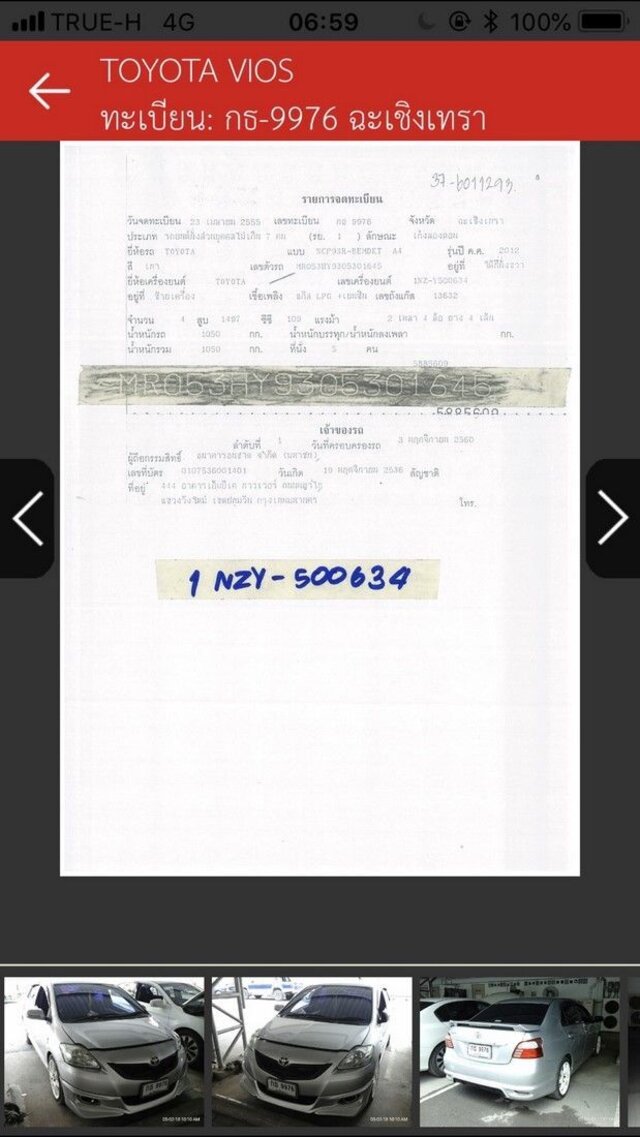 TRUE-H 4G 06:59 100%
TOYOTA VIOS
ทะเบียน: กธ-9976 ฉะเชิงเทรา
37-6011293
รายการจดทะเบียน
วันจดทะเบียน 23 เมษายน 2555 เลขทะเบียน กธ 9976 จังหวัด ฉะเชิงเทรา
ประเภท รถยนต์นั่งส่วนบุคคลไม่เกิน 7 คน (รย. 1) ลักษณะ เก๋งสองตอน
ยี่ห้อรถ TOYOTA แบบ NCP93R-BEMDKT A4 รุ่นปี ค.ศ. 2012
สี เทา เลขตัวรถ MR053HY9305301645 อยู่ที่
ยี่ห้อเครื่องยนต์ TOYOTA เลขเครื่องยนต์ 1NZ-Y500634
อยู่ที่ ซ้ายเครื่อง เชื้อเพลิง LPG +เบนซิน เลขถังแก๊ส 13632
จำนวน 4 สูบ 1497 ซีซี 109 แรงม้า 2 เพลา 4 ล้อ ยาง 4 เส้น
น้ำหนักรถ 1050 กก. น้ำหนักบรรทุก/น้ำหนักลงเพลา กก.
น้ำหนักรวม 1050 กก. ที่นั่ง 5 คน
5885609
MR053HY9305301645
5885609
เจ้าของรถ
ลำดับที่ 1 วันที่ครอบครองรถ 3 พฤศจิกายน 2560
ผู้ถือกรรมสิทธิ์ ธนาคารธนชาต จำกัด (มหาชน)
เลขที่บัตร 0107536001401 วันเกิด 19 พฤศจิกายน 2536 สัญชาติ
ที่อยู่ 444 อาคารเอ็มบีเค ทาวเวอร์ ถนนพญาไท
แขวงวังใหม่ เขตปทุมวัน กรุงเทพมหานคร โทร.
1 NZY-500634